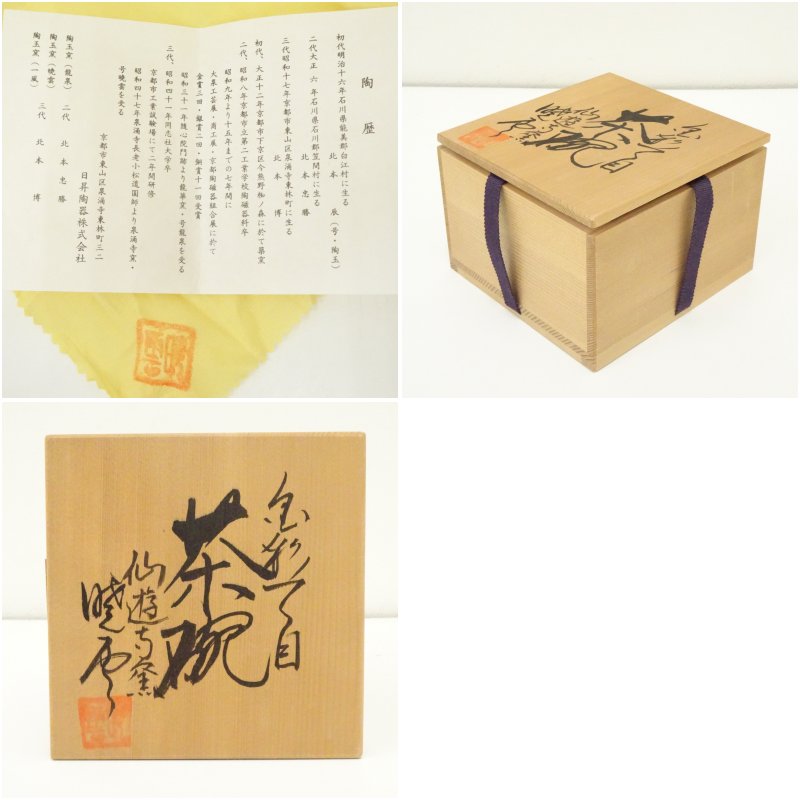 陶歴
初代明治十六年石川県能美郡白江村に生る
北本 辰(号・陶玉)
二代大正 六 年石川県石川郡笠間村に生る
北本 忠勝
三代昭和十七年京都市東山区泉涌寺東林町に生る
北本 博
初代、大正十二年京都市下京区今熊野椥ノ森に於て築窯
二代、昭和八年京都市立第二工業学校陶磁器科卒
昭和九年より十五年までの七年間に
大東工芸展・商工展・京都陶磁器組合展に於て
金賞三回・銀賞二回・銅賞十一回受賞
昭和三十一年随心院門跡より龍華窯・号龍泉を受る
三代、昭和四十一年同志社大学卒
京都市工業試験場にて二年間研修
昭和四十七年泉涌寺長老小松道圓師より泉涌寺窯・
号曉雲を受る
京都市東山区泉涌寺東林町三二
日昇陶器株式会社
陶玉窯(龍泉) 二代 北本忠勝
陶玉窯(曉雲)
陶玉窯(一風) 三代 北本 博
茶碗
仙遊寺窯
曉雲
茶碗
仙遊寺窯
曉雲